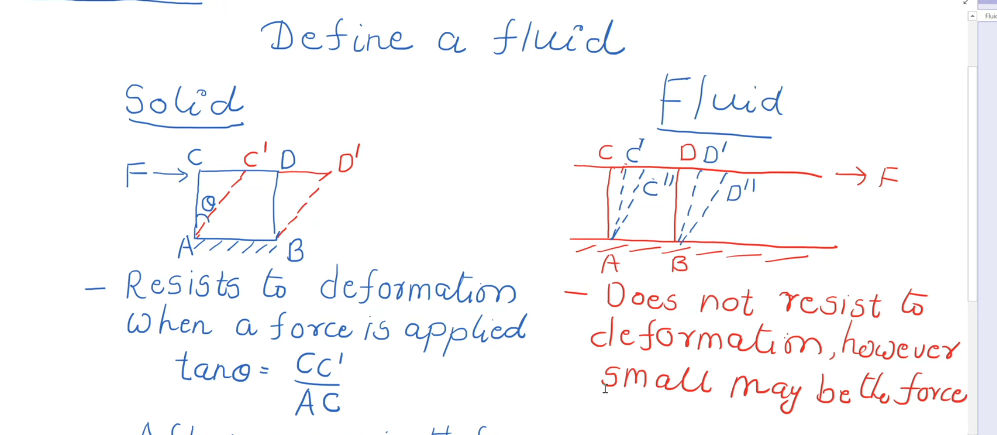 Define a fluid
Solid
F → C C' D D'
θ
A B
- Resists to deformation
when a force is applied
tanθ = CC'
AC
Fluid
C C' D D' → F
C" D"
A B
- Does not resist to
deformation, however
small may be the force
Fluid